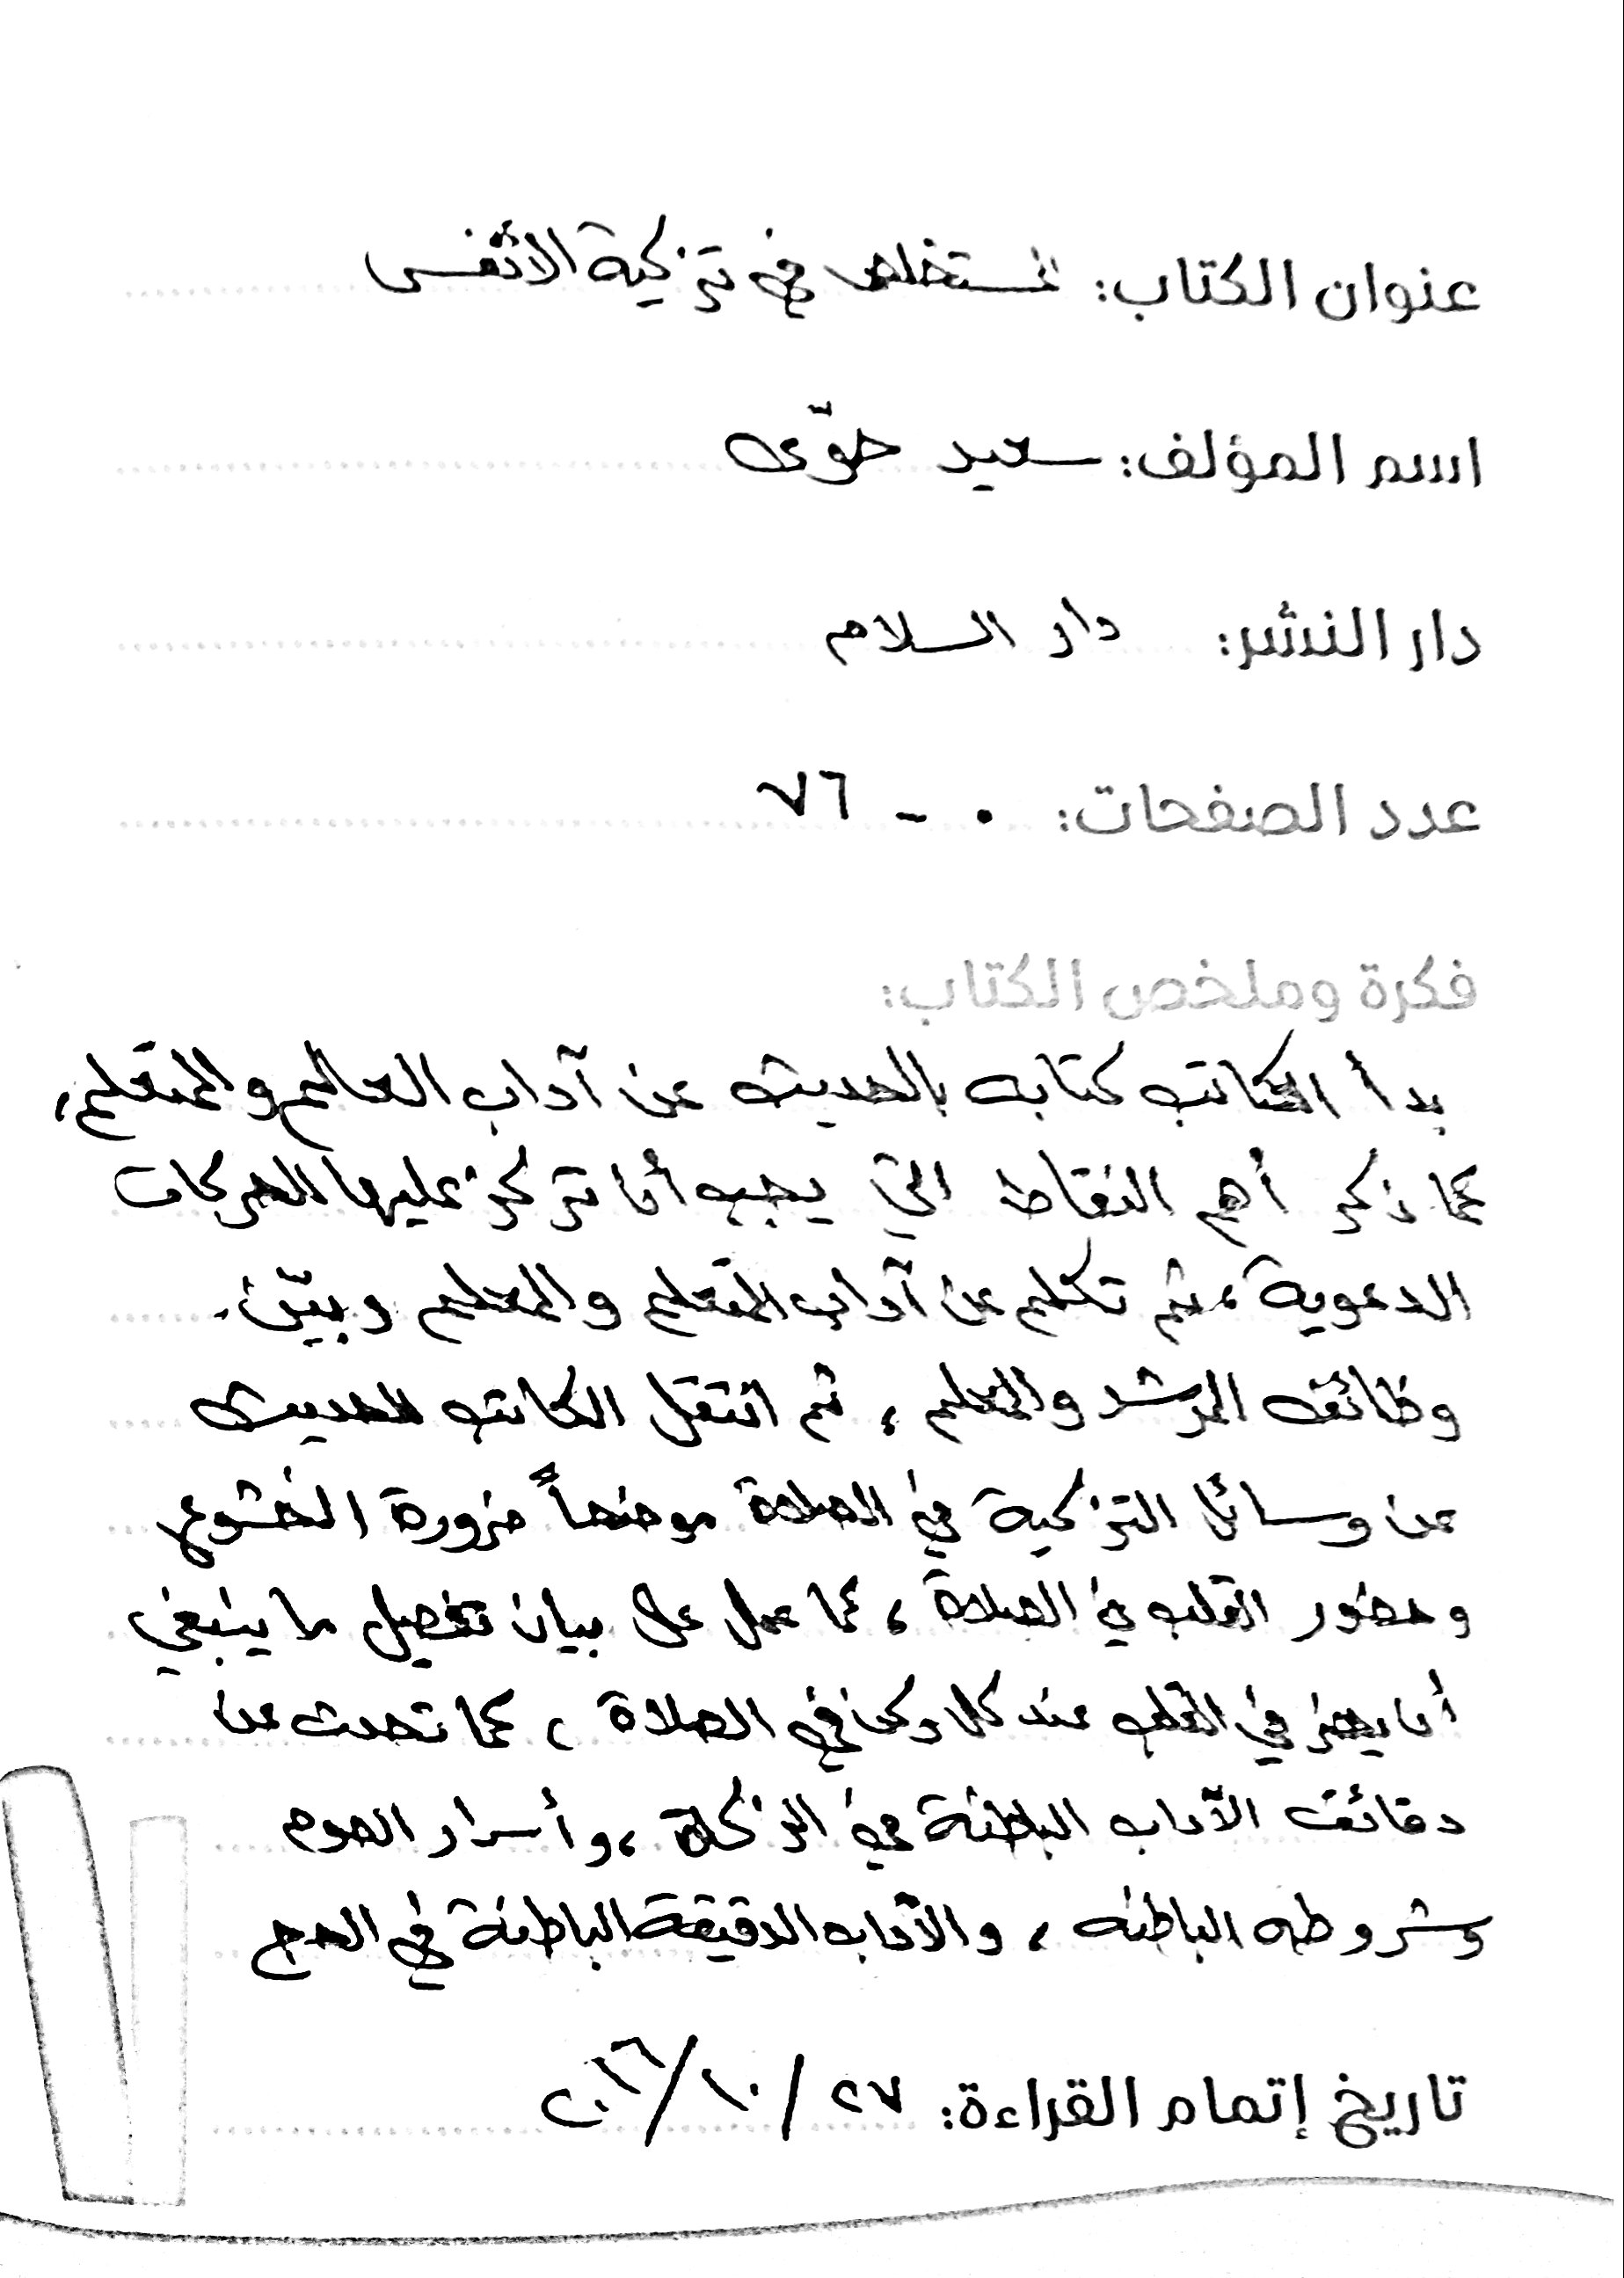 عنوان الكتاب: المستخلص في تزكية الأنفس
اسم المؤلف: سعيد حوّى
دار النشر: دار السلام
عدد الصفحات: ٠ - ٧٦
فكرة وملخص الكتاب:
بدأ الكاتب كتابه بالحديث عن آداب العالم والمتعلم،
كما ذكر أهم النقاط التي يجب أن تركز عليها الحركات
الدعوية، ثم تكلم عن آداب المتعلم والمعلم وبيّن
وظائف المرشد والمعلم، ثم انتقل الكاتب للحديث
عن وسائل التزكية في الصلاة موضحاً ضرورة الخشوع
وحضور القلب في الصلاة، كما عمل على بيان تفصيل ما ينبغي
أن يحضر في القلب عند كل ركن في الصلاة، كما تحدث عن
دقائق الآداب الباطنة في الزكاة، وأسرار الصوم
وشروطه الباطنه، والآداب الدقيقة الباطنة في الحج
تاريخ إتمام القراءة: ٢٧/١٠/٢٠١٦